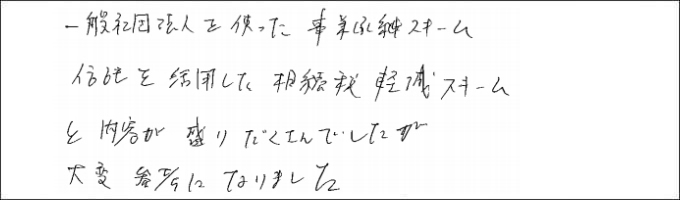 一般社団法人を使った事業承継スキーム
信託を活用した相続税軽減スキーム
と内容が盛りだくさんでしたが
大変参考になりました